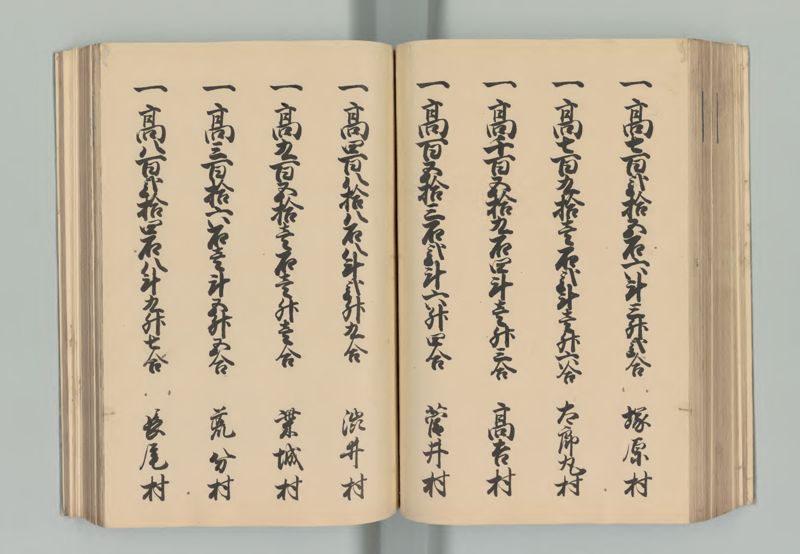 一高七百弐拾五石六斗三升弐合 塚原村
一高七百九拾壱石弐斗壱升六合 太郎丸村
一高千百五拾九石四斗壱升三合 高吉村
一高百五拾三石弐斗六升四合 菅井村
一高四百八拾八石八斗弐升九合 渋井村
一高九百五拾壱石壱升壱合 葉城村
一高三百拾六石壱斗五升五合 荒分村
一高八百弐拾四石八斗九升七合 長尾村